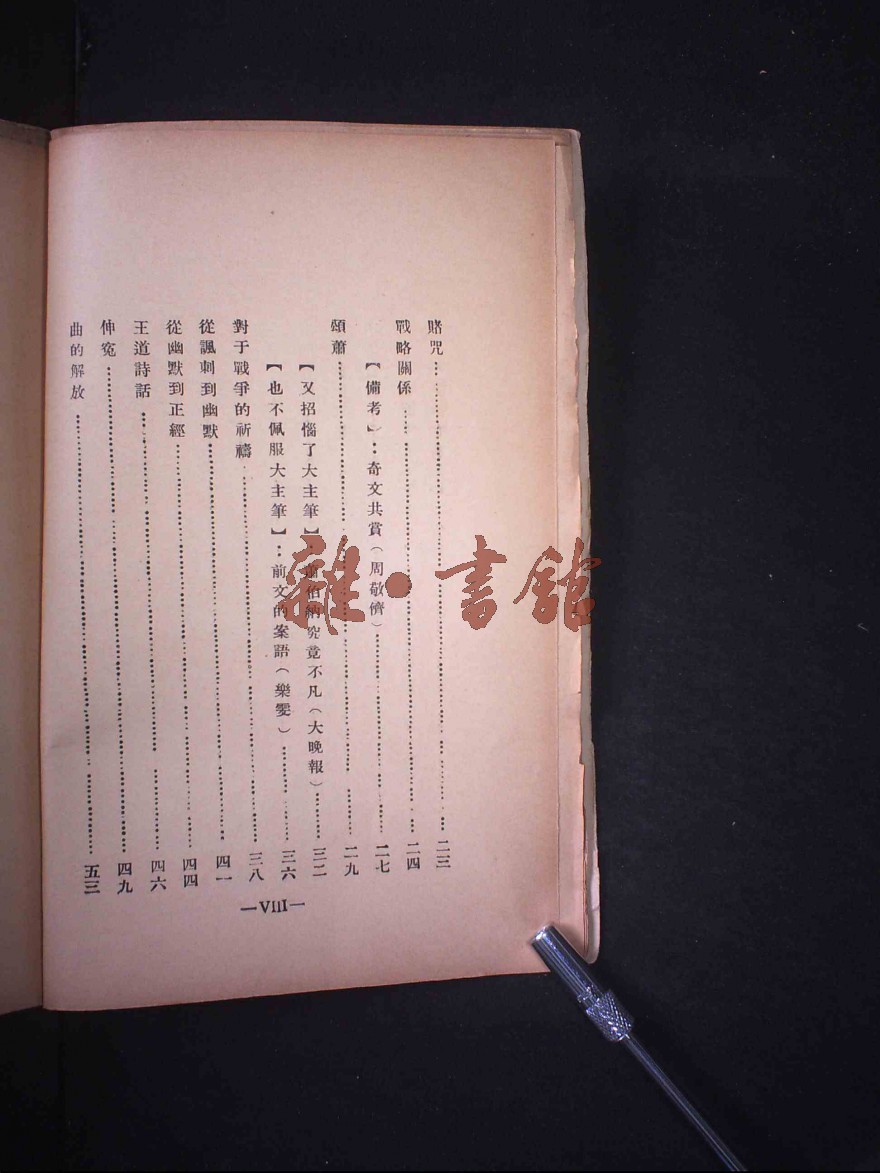 賭咒……二三
戰略關係……二四
【備考】：奇文共賞（周敬儕）……二七
頌蕭……二九
【又招惱了大主筆】：蕭伯納究竟不凡（大晚報）……三二
【也不佩服大主筆】：前文的案語（樂雯）……三六
對于戰爭的祈禱……三八
從諷刺到幽默……四一
從幽默到正經……四四
王道詩話……四六
伸冤……四九
曲的解放……五三
—VIII—
雜·書館